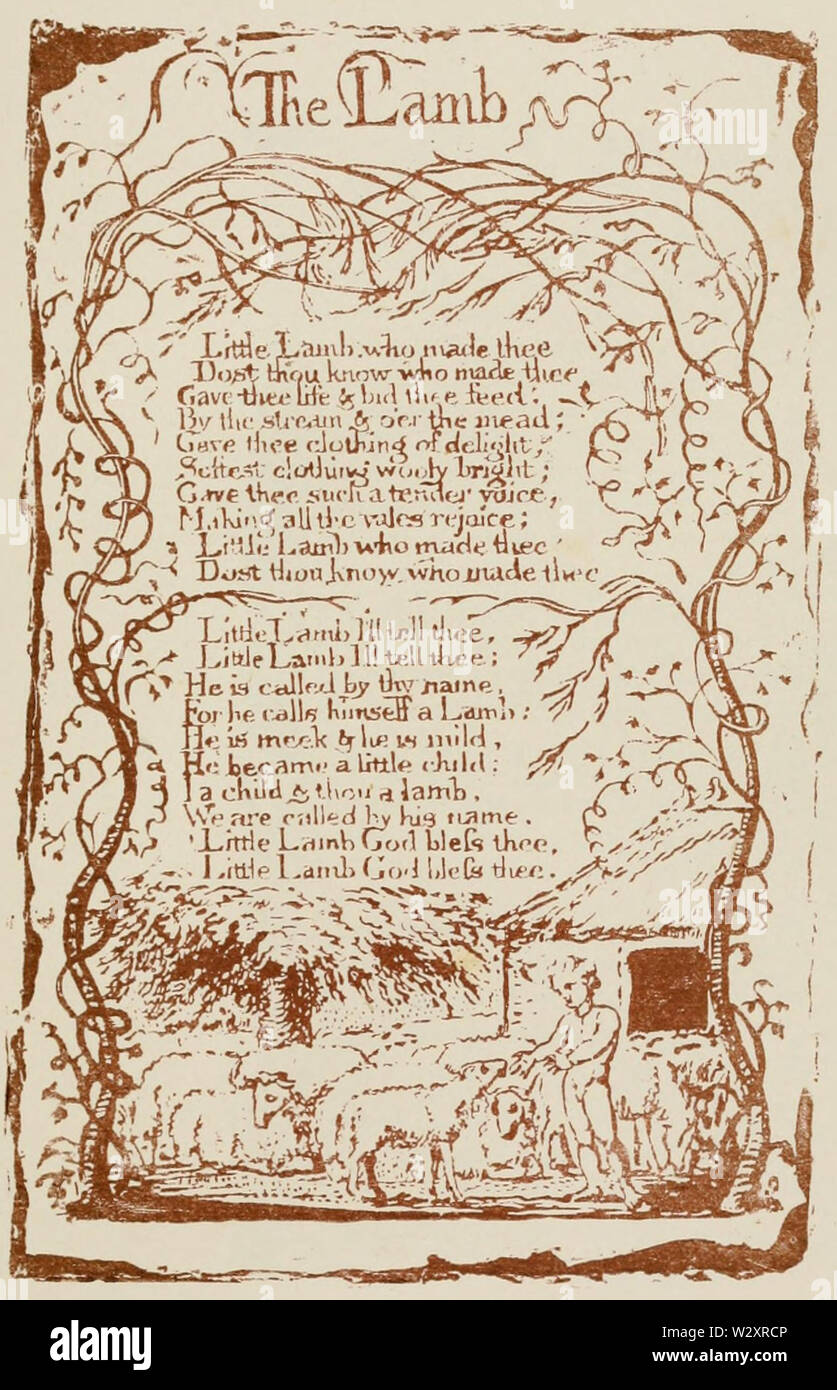 The Lamb
Little Lamb who made thee
Dost thou know who made thee
Gave thee life & bid thee feed.
By the stream & o'er the mead;
Gave thee clothing of delight,
Softest clothing wooly bright;
Gave thee such a tender voice,
Making all the vales rejoice;
Little Lamb who made thee
Dost thou know who made thee
Little Lamb I'll tell thee,
Little Lamb I'll tell thee;
He is called by thy name,
For he calls himself a Lamb:
He is meek & he is mild,
He became a little child:
I a child & thou a lamb,
We are called by his name.
Little Lamb God bleſs thee,
Little Lamb God bleſs thee.
alamy
Image ID: W2XRCP
www.alamy.com